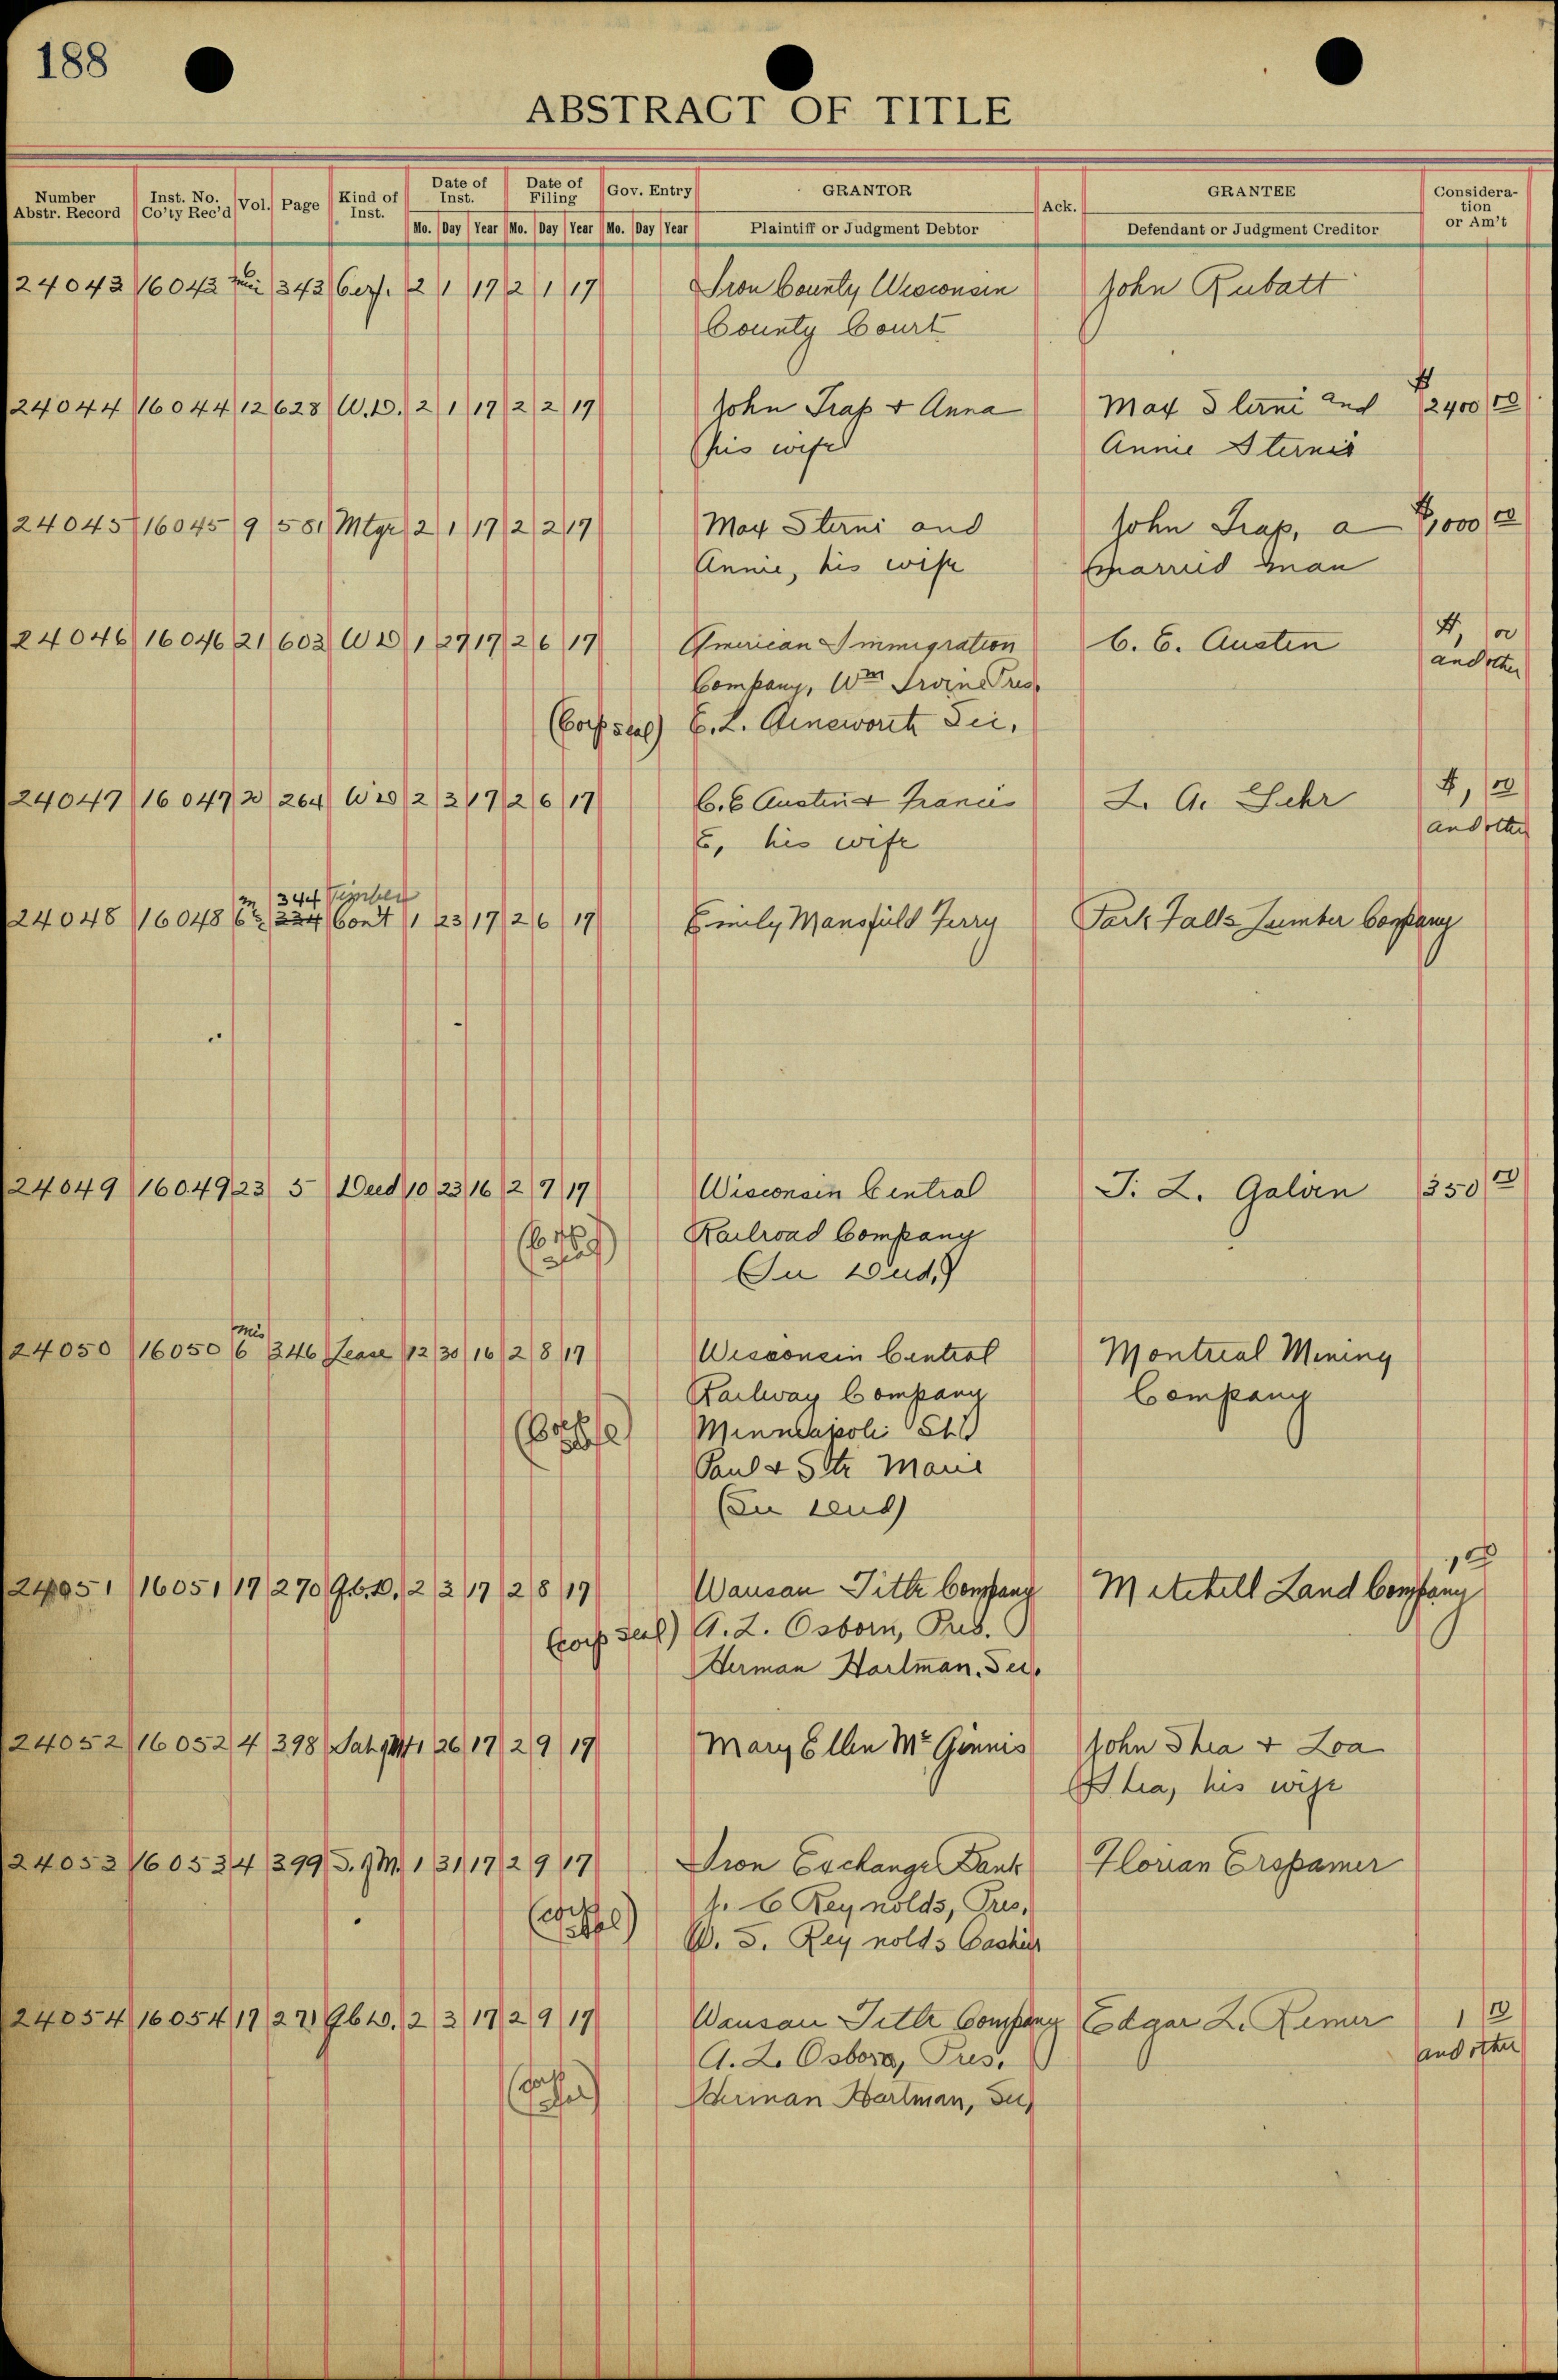 188
ABSTRACT OF TITLE
Number Abstr. Record Inst. No. Co'ty Rec'd Vol. Page Kind of Inst. Date of Inst. Date of Filing Gov. Entry GRANTOR Ack. GRANTEE Consideration or Am't
Mo. Day Year Mo. Day Year Mo. Day Year Plaintiff or Judgment Debtor Defendant or Judgment Creditor
24043 16043 343 Cert. 2 1 17 2 1 17 Iron County Wisconsin John Rubatt
County Court
24044 16044 12 628 W.D. 2 1 17 2 2 17 John Trap & Anna Max Sterni and $2400 00
his wife Annie Sternis
24045 16045 9 581 Mtge 2 1 17 2 2 17 Max Sterni and John Trap, a $1,000 00
Annie, his wife married man
24046 16046 21 602 WD 1 27 17 2 6 17 American Immigration C. E. Austin $1, 00
Company, Wm Irvine Pres. and other
(Corp seal) E. L. Ainsworth Sec.
24047 16047 20 264 WD 2 2 17 2 6 17 C. E Austin & Francis L. A. Suhr $1, 00
E, his wife and other
344 Timber
24048 16048 6 334 Cont 1 23 17 2 6 17 Emily Mansfield Ferry Park Falls Lumber Company
24049 16049 23 5 Deed 10 23 16 2 7 17 Wisconsin Central T. L. Galvin 350 00
(Corp seal) Railroad Company
(In Deed)
Mis
24050 16050 6 346 Lease 12 30 16 2 8 17 Wisconsin Central Montreal Mining
Railway Company Company
(Corp seal) Minneapoli St
Paul & Ste Marie
24051 16051 17 270 Q.C.D. 2 3 17 2 8 17 Wausau Title Company Mitchell Land Company 1, 00
(corp seal) A. L. Osborn, Pres.
Herman Hartman, Sec.
24052 16052 4 398 Sat. 1 26 17 2 9 17 Mary Ellen Mc Ginnis John Shea & Loa
Shea, his wife
24053 16053 4 399 S. of M. 1 31 17 2 9 17 Iron Exchange Bank Florian Erspamer
(corp seal) Reynolds, Pres.
W. S. Reynolds Cashier
24054 16054 17 271 Q.C.D. 2 3 17 2 9 17 Wausau Title Company Edgar L. Remer 1 00
A. L. Osborn, Pres. and other
(corp seal) Herman Hartman, Sec,